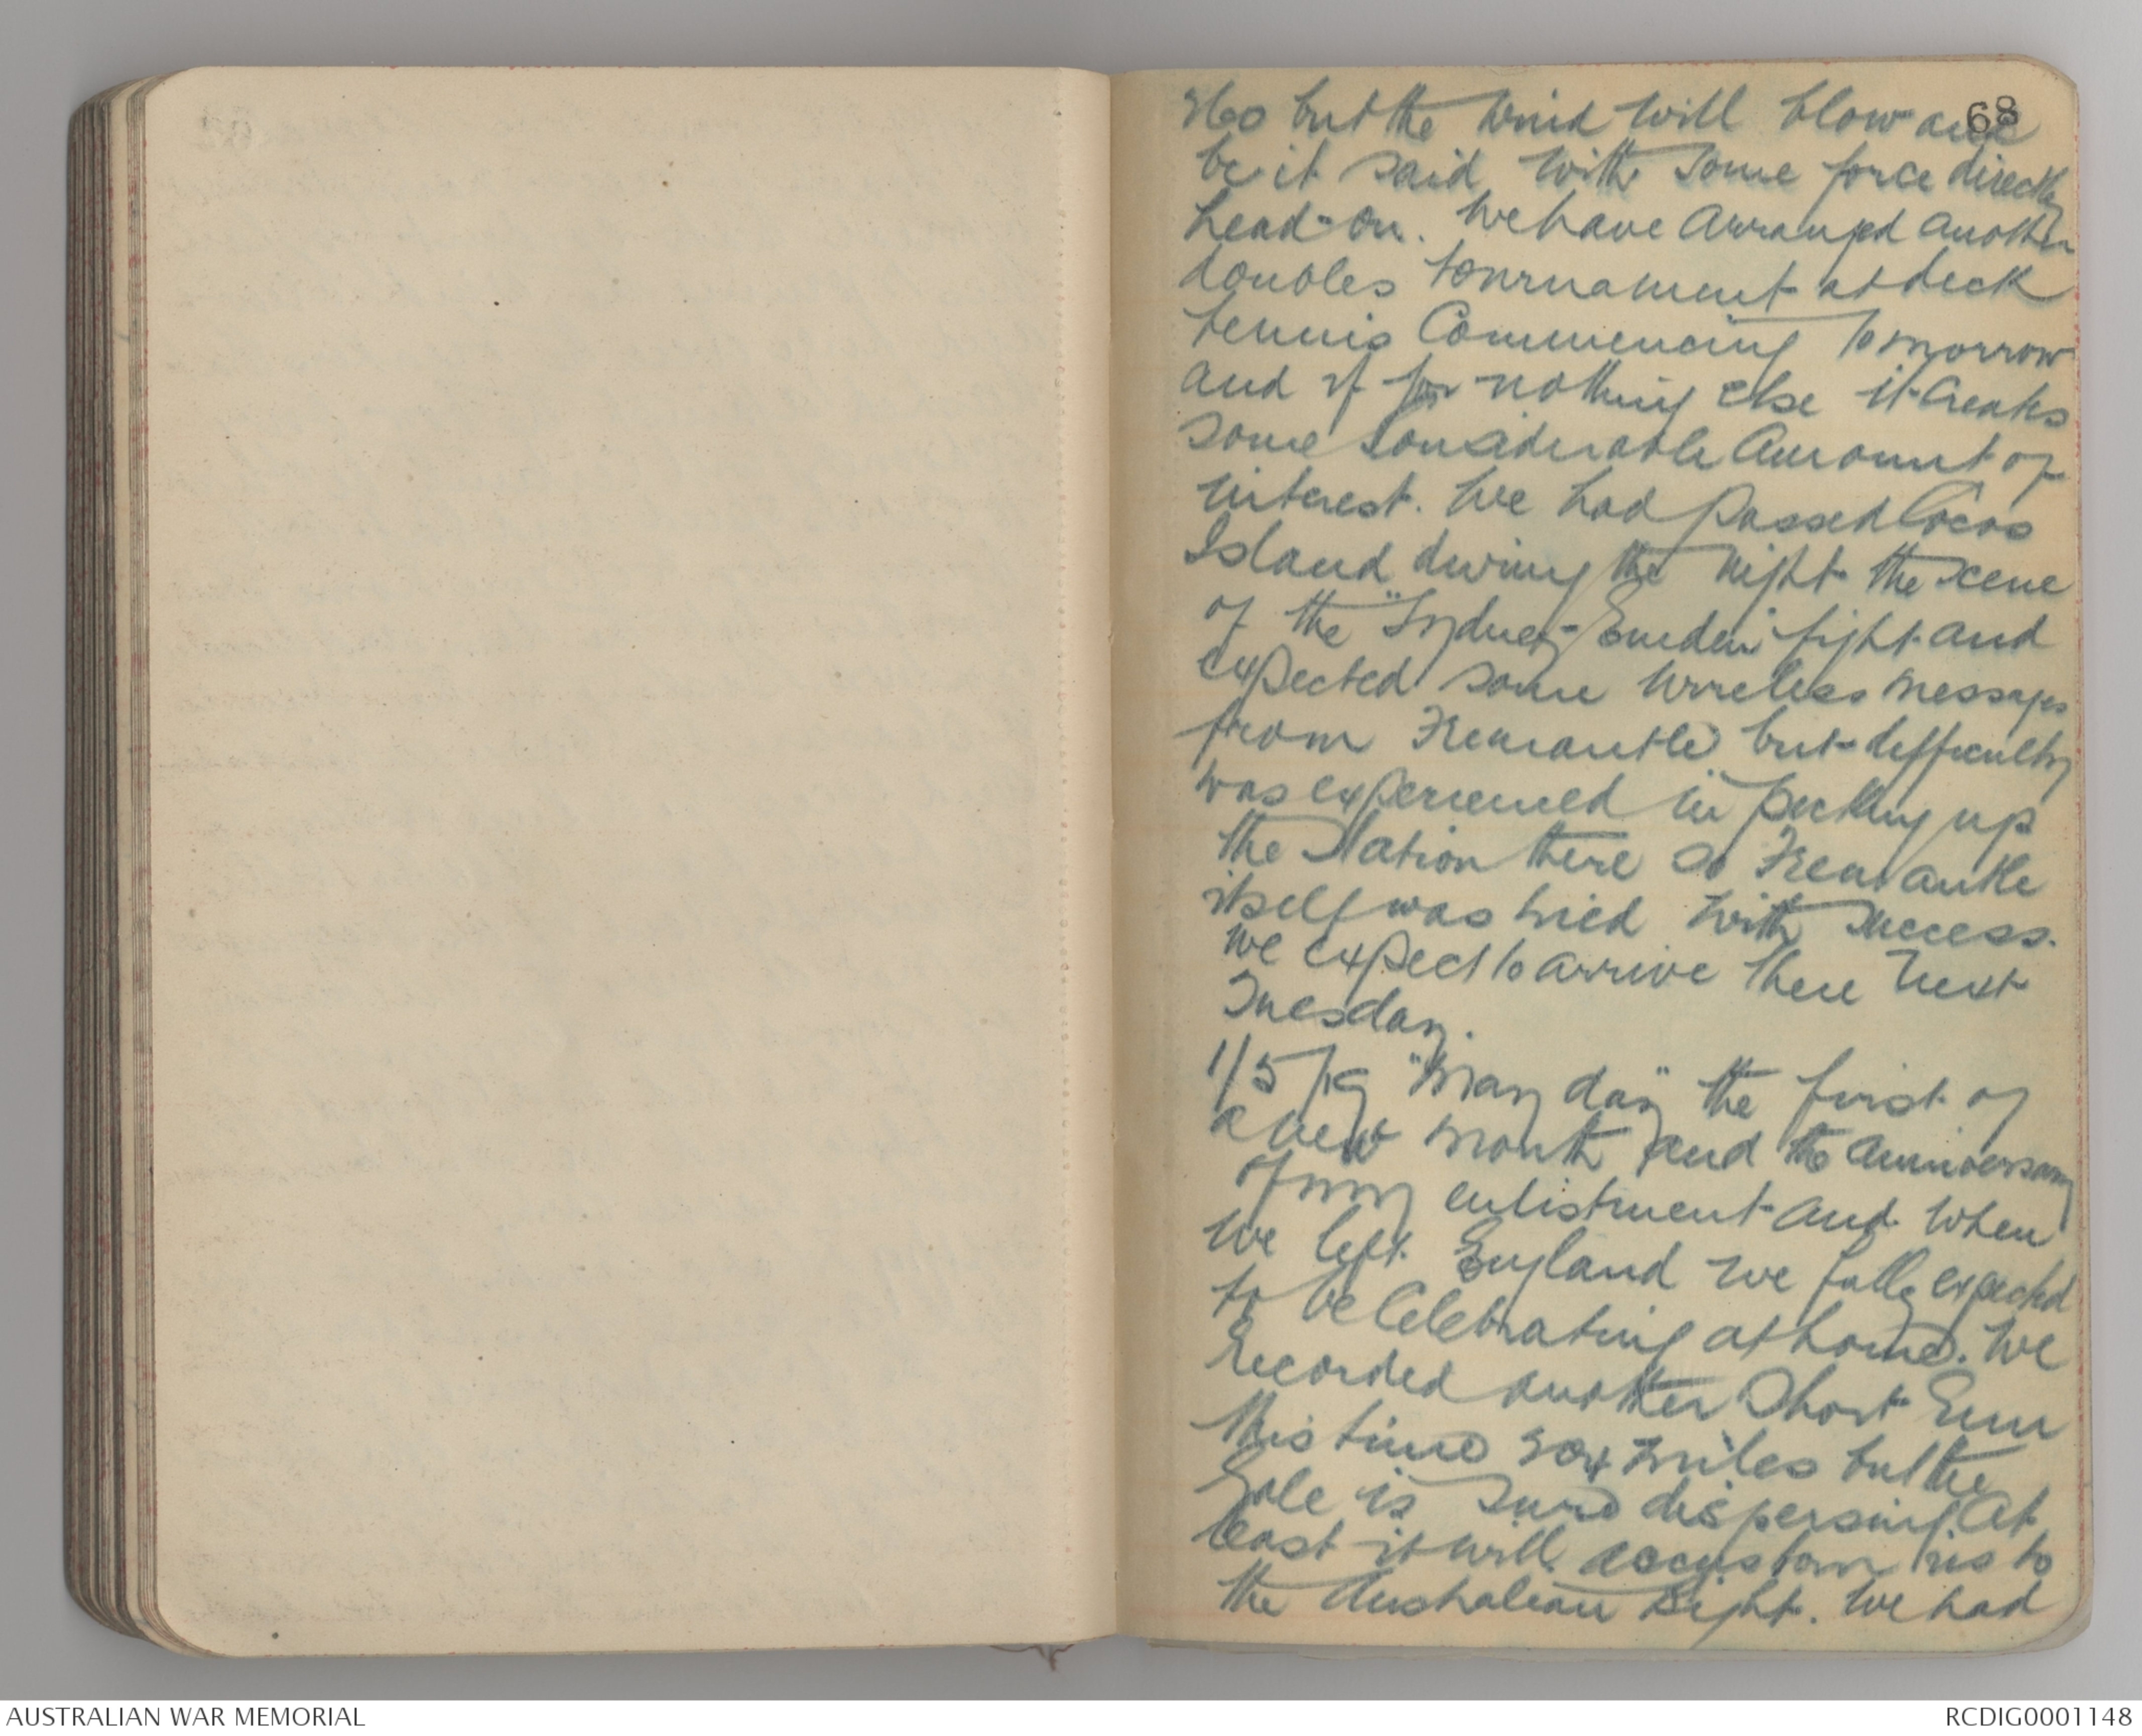 68
but the wind will blow and
be it said with some force directly
head-on. We have arranged another
doubles tournament at deck
tennis Commencing tomorrow
and if for nothing else it creates
some Considerable Amount of
interest. We had passed Cocos
Island during the night the scene
of the "Sydney-Emden" fight and
expected some wireless messages
from Fremantle but difficulty
was experienced in picking up
the Station there so Fremantle
itself was tried with success.
We expect to arrive there next
Tuesday.
1/5/19 "May day" the first of
a new month and the anniversary
of my enlistment and when
we left England we fully expected
to be Celebrating at home. We
recorded another Short Run
this time 304 miles but the
Gale is sure dispersing. At
least it will accustom us to
the Australian Bight. We had
AUSTRALIAN WAR MEMORIAL
RCDIG0001148